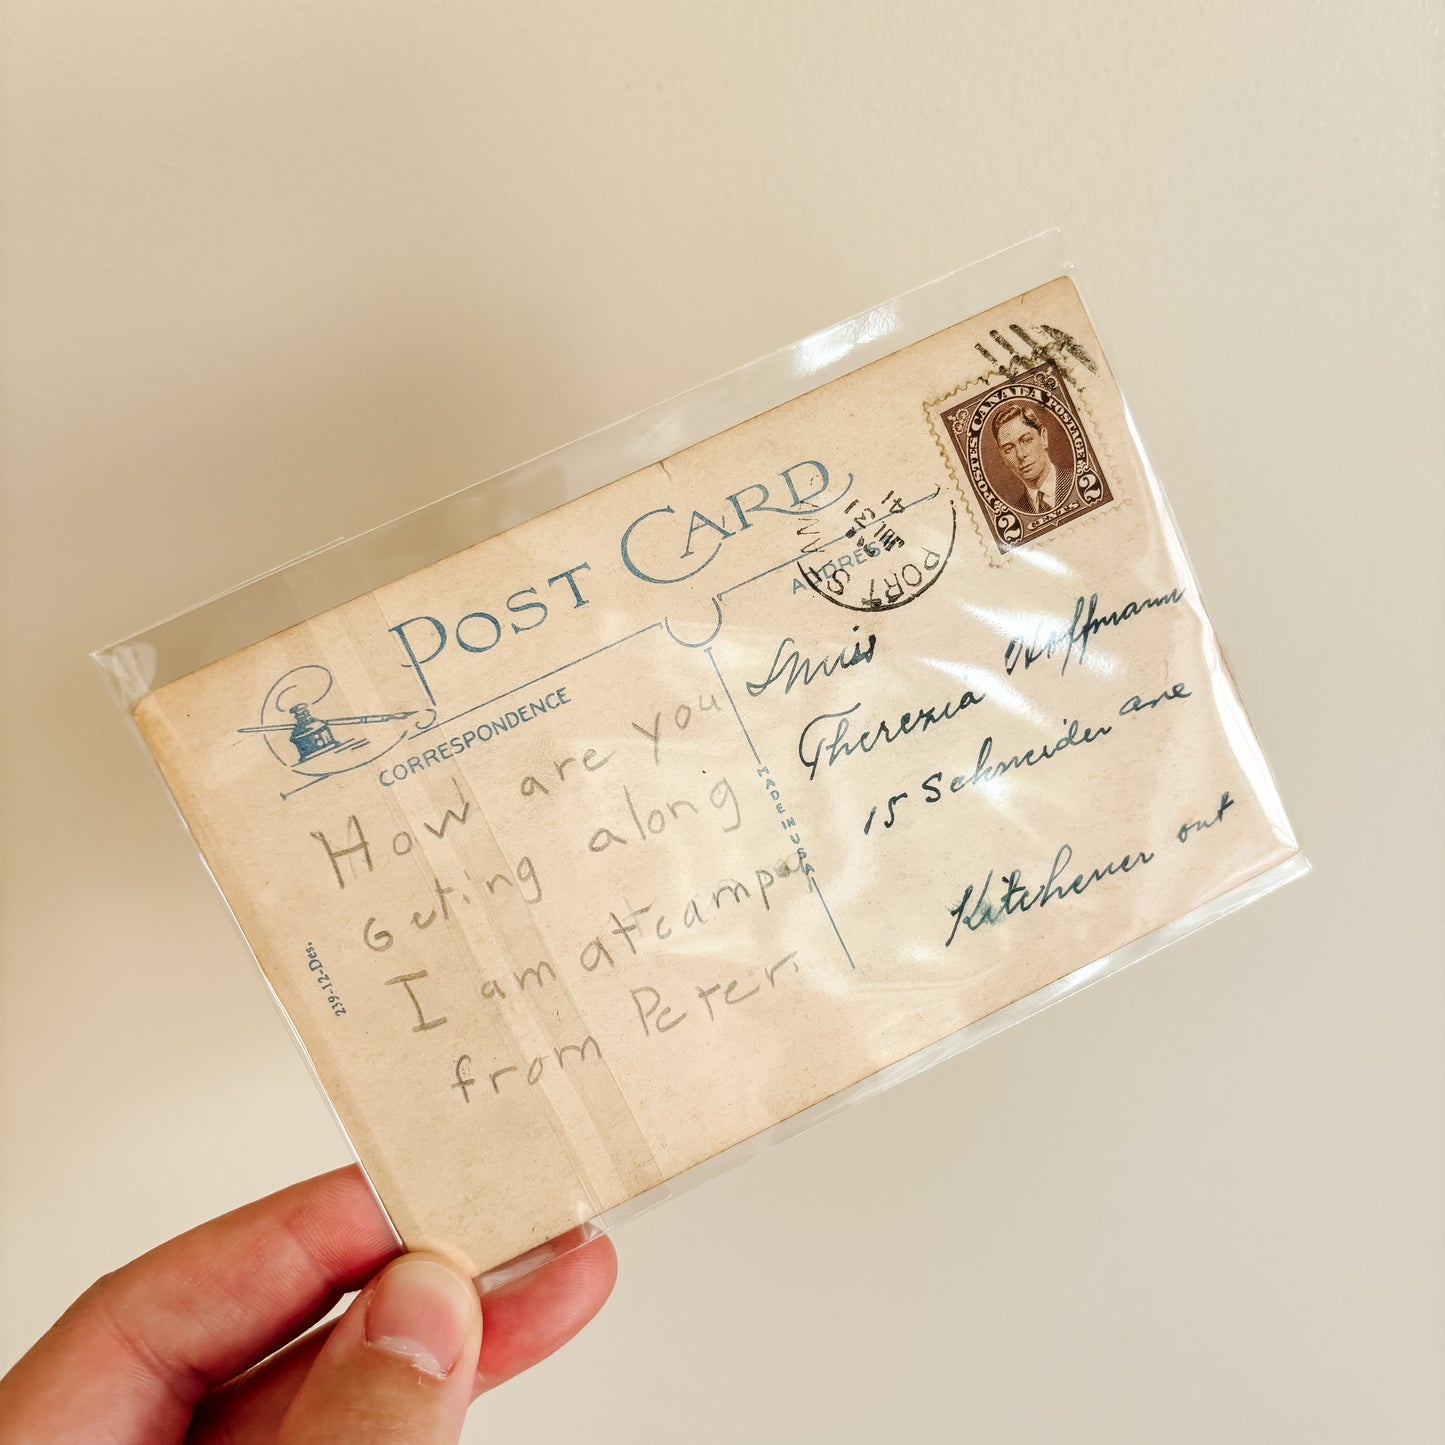 POST CARD
CORRESPONDENCE
ADDRESS
CANADA
POSTES POSTAGE
2 CENTS 2
PORT
31
41
How are you
Geting along
I am at campu
from Peter.
MADE IN USA
239-12-Des.
Miss
Therezia Hoffmann
15 Schneider ave
Kitchener ont